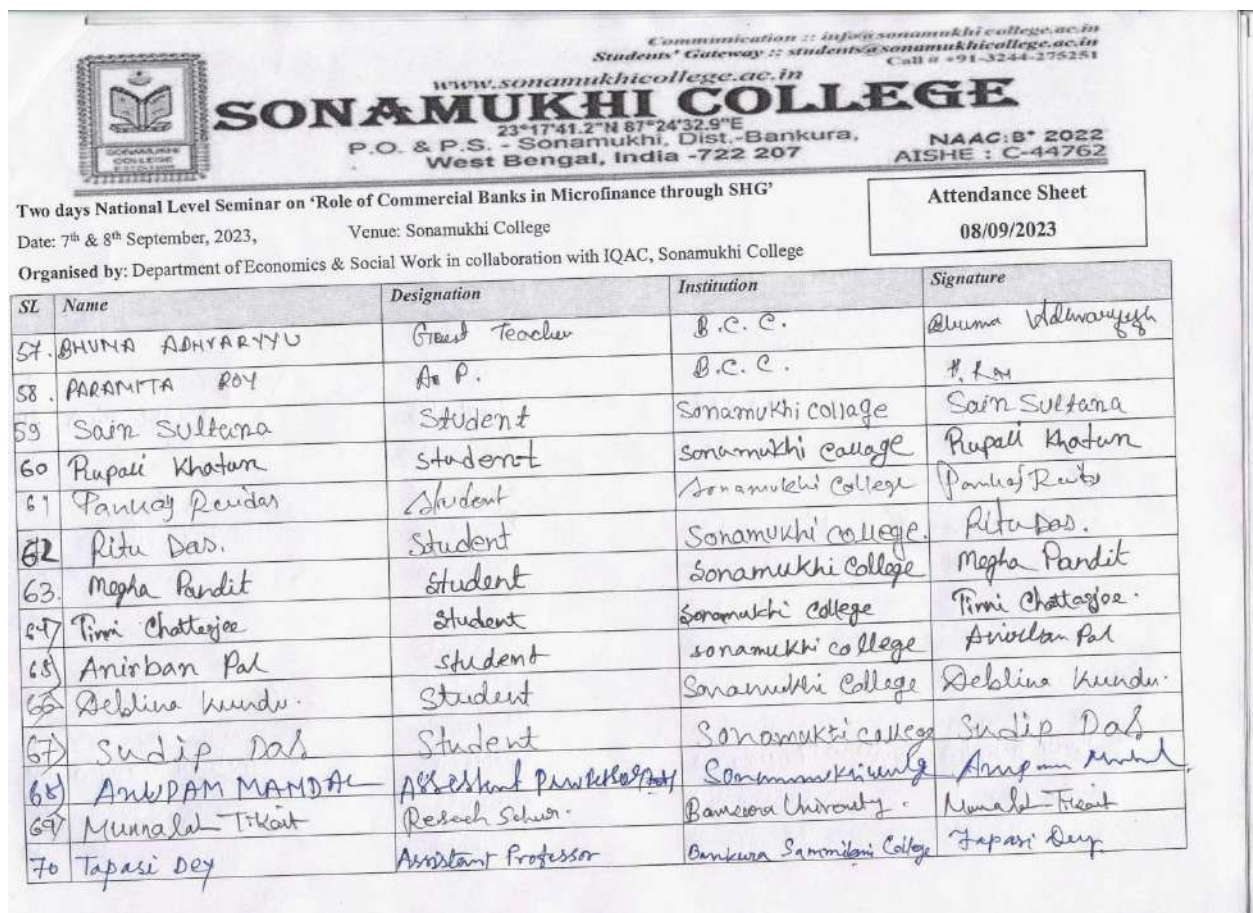 Communication :: info@sonamukhicollege.ac.in
Students' Gateway :: students@sonamukhicollege.ac.in
Call # +91-3244-275251
www.sonamukhicollege.ac.in
SONAMUKHI COLLEGE
23°17'41.2"N 87°24'32.9"E
P.O. & P.S. - Sonamukhi, Dist.-Bankura,
West Bengal, India -722 207
NAAC:B+ 2022
AISHE : C-44762
SONAMUKHI
COLLEGE
Two days National Level Seminar on 'Role of Commercial Banks in Microfinance through SHG'
Date: 7th & 8th September, 2023, Venue: Sonamukhi College
Organised by: Department of Economics & Social Work in collaboration with IQAC, Sonamukhi College
Attendance Sheet
08/09/2023
SL Name Designation Institution Signature
57. BHUMA ADHYARYYU Guest Teacher B.C.C. Bhuma
58. PARAMITA ROY A. P. B.C.C. P. Roy
59 Sain Sultana Student Sonamukhi collage Sain Sultana
60 Rupali Khatun Student Sonamukhi Collage Rupali Khatun
61 Pankaj Student Sonamukhi College Pankaj
62 Ritu Das. Student Sonamukhi College. Ritu Das.
63. Megha Pandit Student Sonamukhi College Megha Pandit
64) Tinni Chatterjee Student Sonamukhi College Tinni Chatterjee.
65) Anirban Pal Student Sonamukhi College Anirban Pal
66) Deblina Kundu. Student Sonamukhi College Deblina Kundu.
67) Sudip Das Student Sonamukhi College Sudip Das
68) ANUPAM MANDAL Anupam
69) Munnalal Tikait Munnalal Tikait
70 Tapasi Dey Assistant Professor Bankura Sammilani College Tapasi Dey